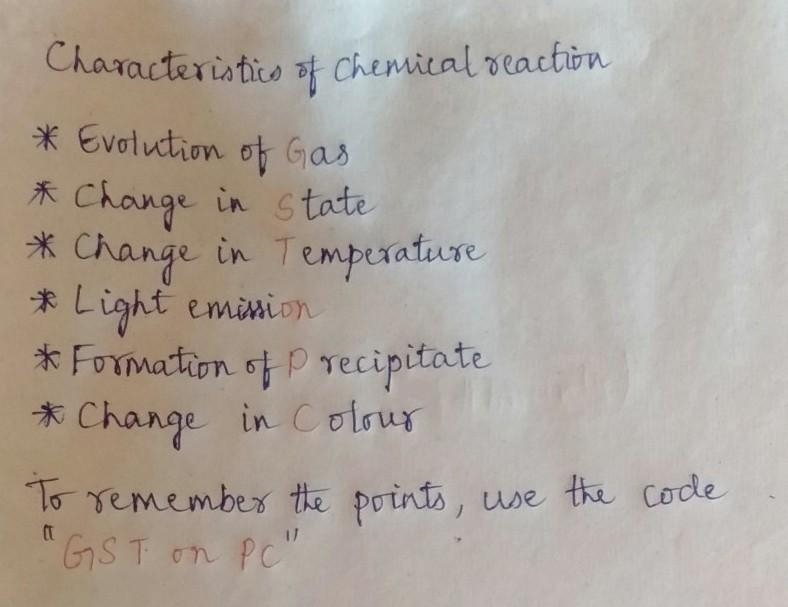 Characteristics of Chemical reaction
* Evolution of Gas
* Change in State
* Change in Temperature
* Light emission
* Formation of Precipitate
* Change in Colour
To remember the points, use the code
"GST on PC"